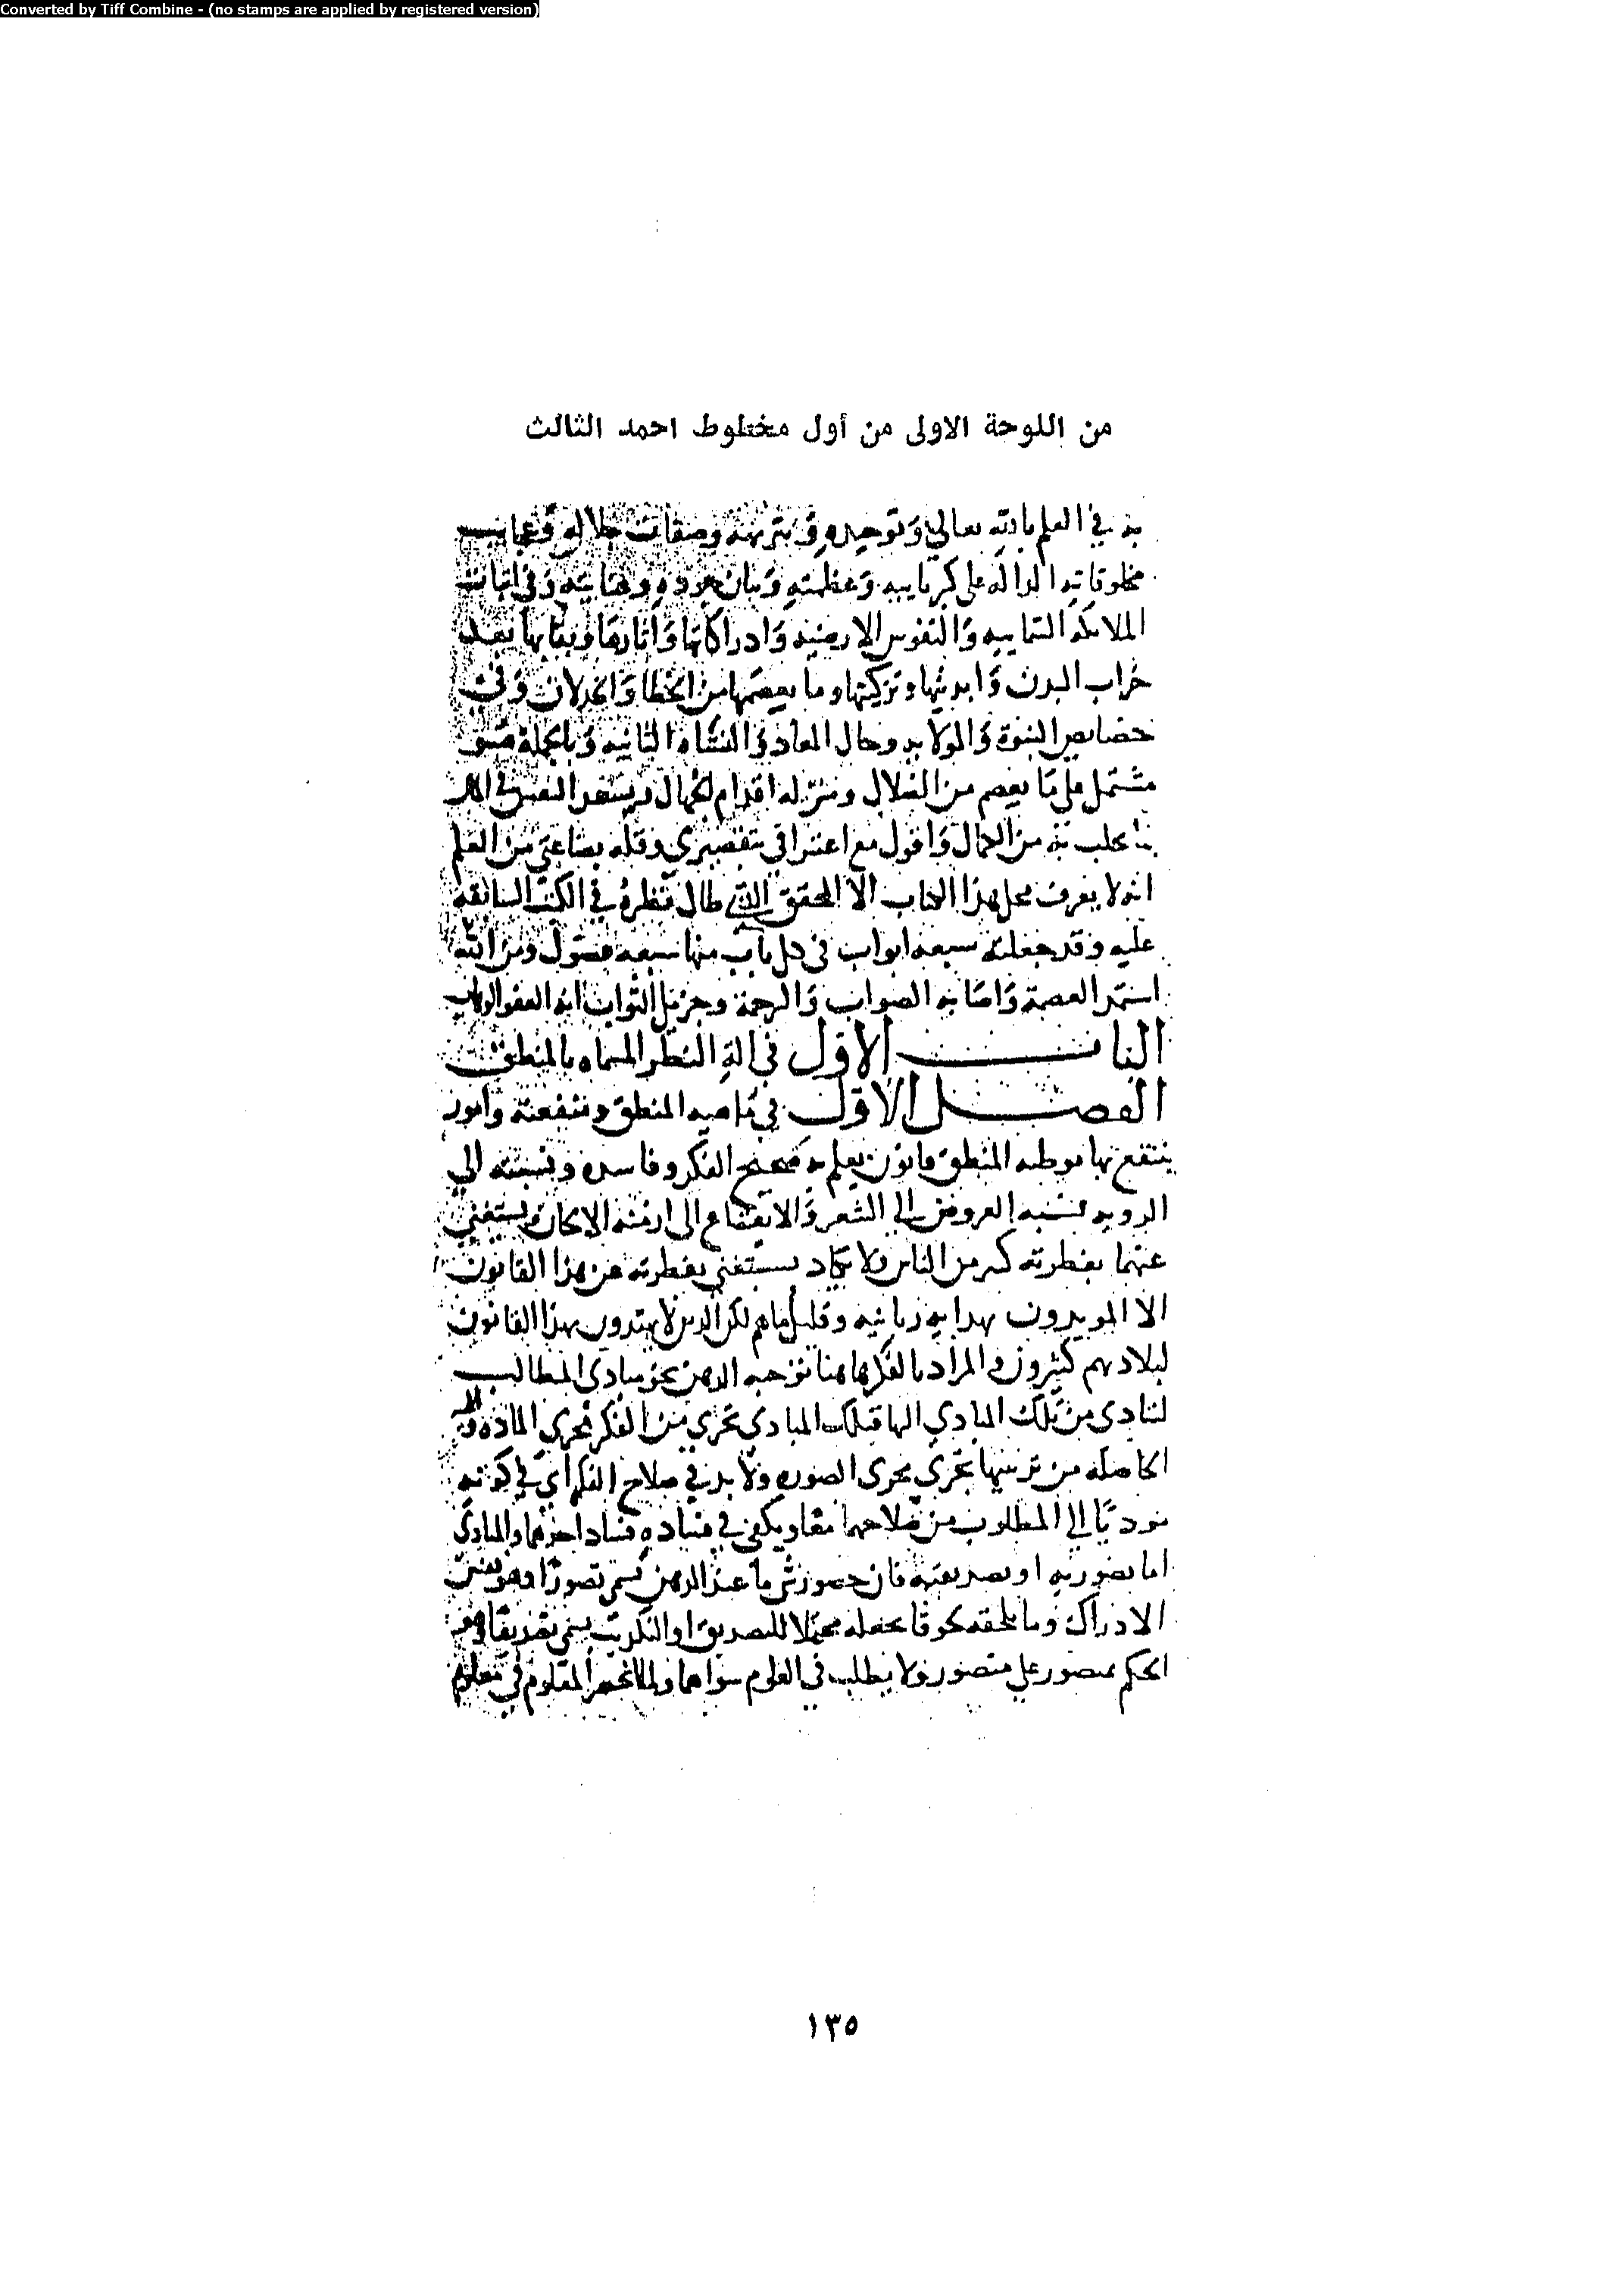 Converted by Tiff Combine - (no stamps are applied by registered version)
من اللوحة الاولى من أول مخطوط احمد الثالث
به في العلم بالله تعالى وتوحيده وتنزيهه وصفات جلاله وعجايب
مخلوقاته الدالة على كبريايه وعظمته وبيان جوده وعنايته وفي اثبات
الملايكه السماييه والنفوس الارضيه وادراكاتها واثارها وبقايها بعد
خراب البدن وابديتها وتزكيتها وما يعصمها من الخطا والخذلان وفي
خصايص النبوة والولايه وحال المعاد في النشاة الثانيه وبالجملة فهو
مشتمل على ما يعصم من الضلال ومنزله اقدام الجهال ويستعد النفس
من الكمال واقول مع اعترافي بتقصيري وقلة بضاعتي من العلم
انه لا يعرف محل هذا الكتاب الا المحقق الذي طال نظره في الكتب السابقه
عليه وقد جعلته سبعه ابواب في كل باب منها سبعه فصول ومن الله
استمد العصمة واصابه الصواب والرحمة وجزيل الثواب انه العفو الوهاب
الباب الاول في الة النظر المسماه بالمنطق
الفصل الاول في ماهيه المنطق ومنفعته وامور
ينتفع بها موطيه المنطق قانون يعلم به صحيح الفكر وفاسده ونسبته الى
الرويه كنسبه العروض الى الشعر والايقاع الى ازمنه الالحان ويستغني
عنهما بفطرته كثير من الناس ولا يكاد يستغني بفطرته عن هذا القانون
الا المويدون بهدايه ربانيه وقليل ما هم لكن الذين لا يهتدون بهذا القانون
لبلادتهم كثيرون والمراد بالفكر هاهنا توجه الذهن نحو مبادي المطالب
لتادى من تلك المبادي اليها فتلك المبادي تجري من الفكر مجرى الماده
الحاصله من ترتيبها تجرى مجرى الصوره ولا بد في صلاح الفكر اي في كونه
موديا الى المطلوب من صلاحهما معا ويكفي في فساده فساد احدهما والمبادي
اما تصوريه او تصديقيه فان حضور شي ما عند الذهن يسمى تصورا وهو نفس
الادراك وما يلحقه لحوقا يجعله محتملا للتصديق او التكذيب يسمى تصديقا وهو
الحكم بمتصور على متصور ولا يطلب في العلوم سواهما ولما انحصر المعلوم في معلوم
١٣٥